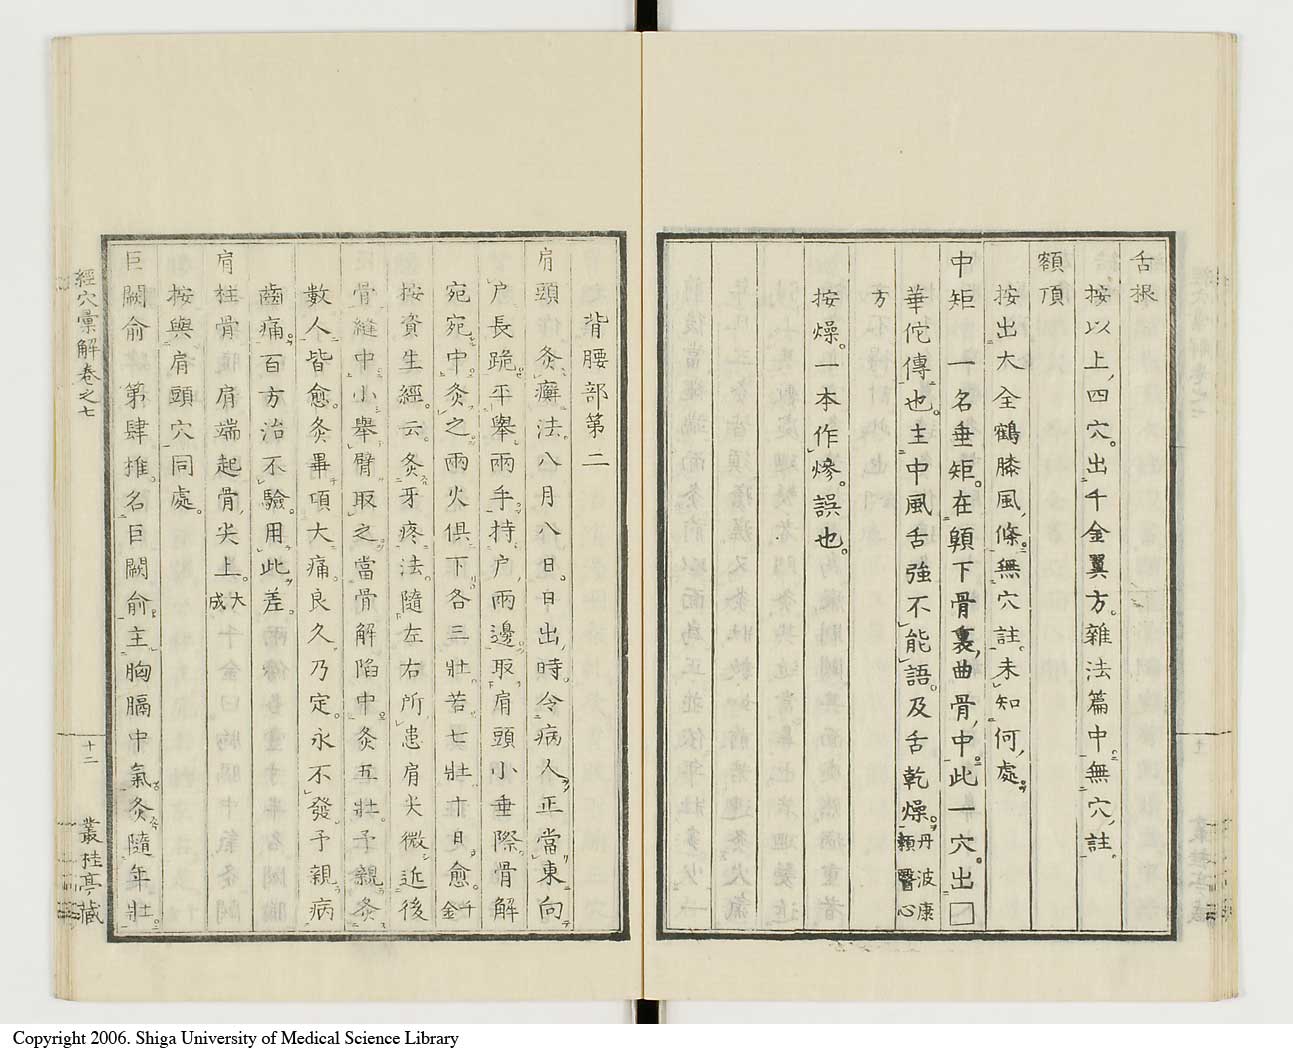 舌根
按以上四穴。出千金翼方。雜法篇中。無穴註。
額頂
按出大全鶴膝風條。無穴註。未知何處。
中矩 一名垂矩。在頥下骨裏曲骨中。此一穴。出□
華佗傳也。主中風舌強不能語。及舌乾燥。丹波康頼醫心
方
按燥。一本作㿊。誤也。
背腰部第二
肩頭 灸癬法。八月八日。日出時。令病人正當東向
户長跪。平舉兩手。持户兩邊。取肩頭小垂際骨解
宛宛中。灸之。兩火俱下。各三壯若七壯。十日愈。千金
按資生經云。灸牙疼法。隨左右所患肩尖微近後
骨縫中。小舉臂取之。當骨解陷中。灸五壯。予親灸
數人。皆愈。灸畢項大痛。良久乃定。永不發。予親病
齒痛。百方治不驗。用此差。
肩柱骨 肩端起骨尖上。大成
按與肩頭穴同處。
巨闕俞 第肆椎。名巨闕俞。主胸膈中氣。灸隨年壯。
經穴彙解卷之七
十二
叢桂亭藏
Copyright 2006. Shiga University of Medical Science Library